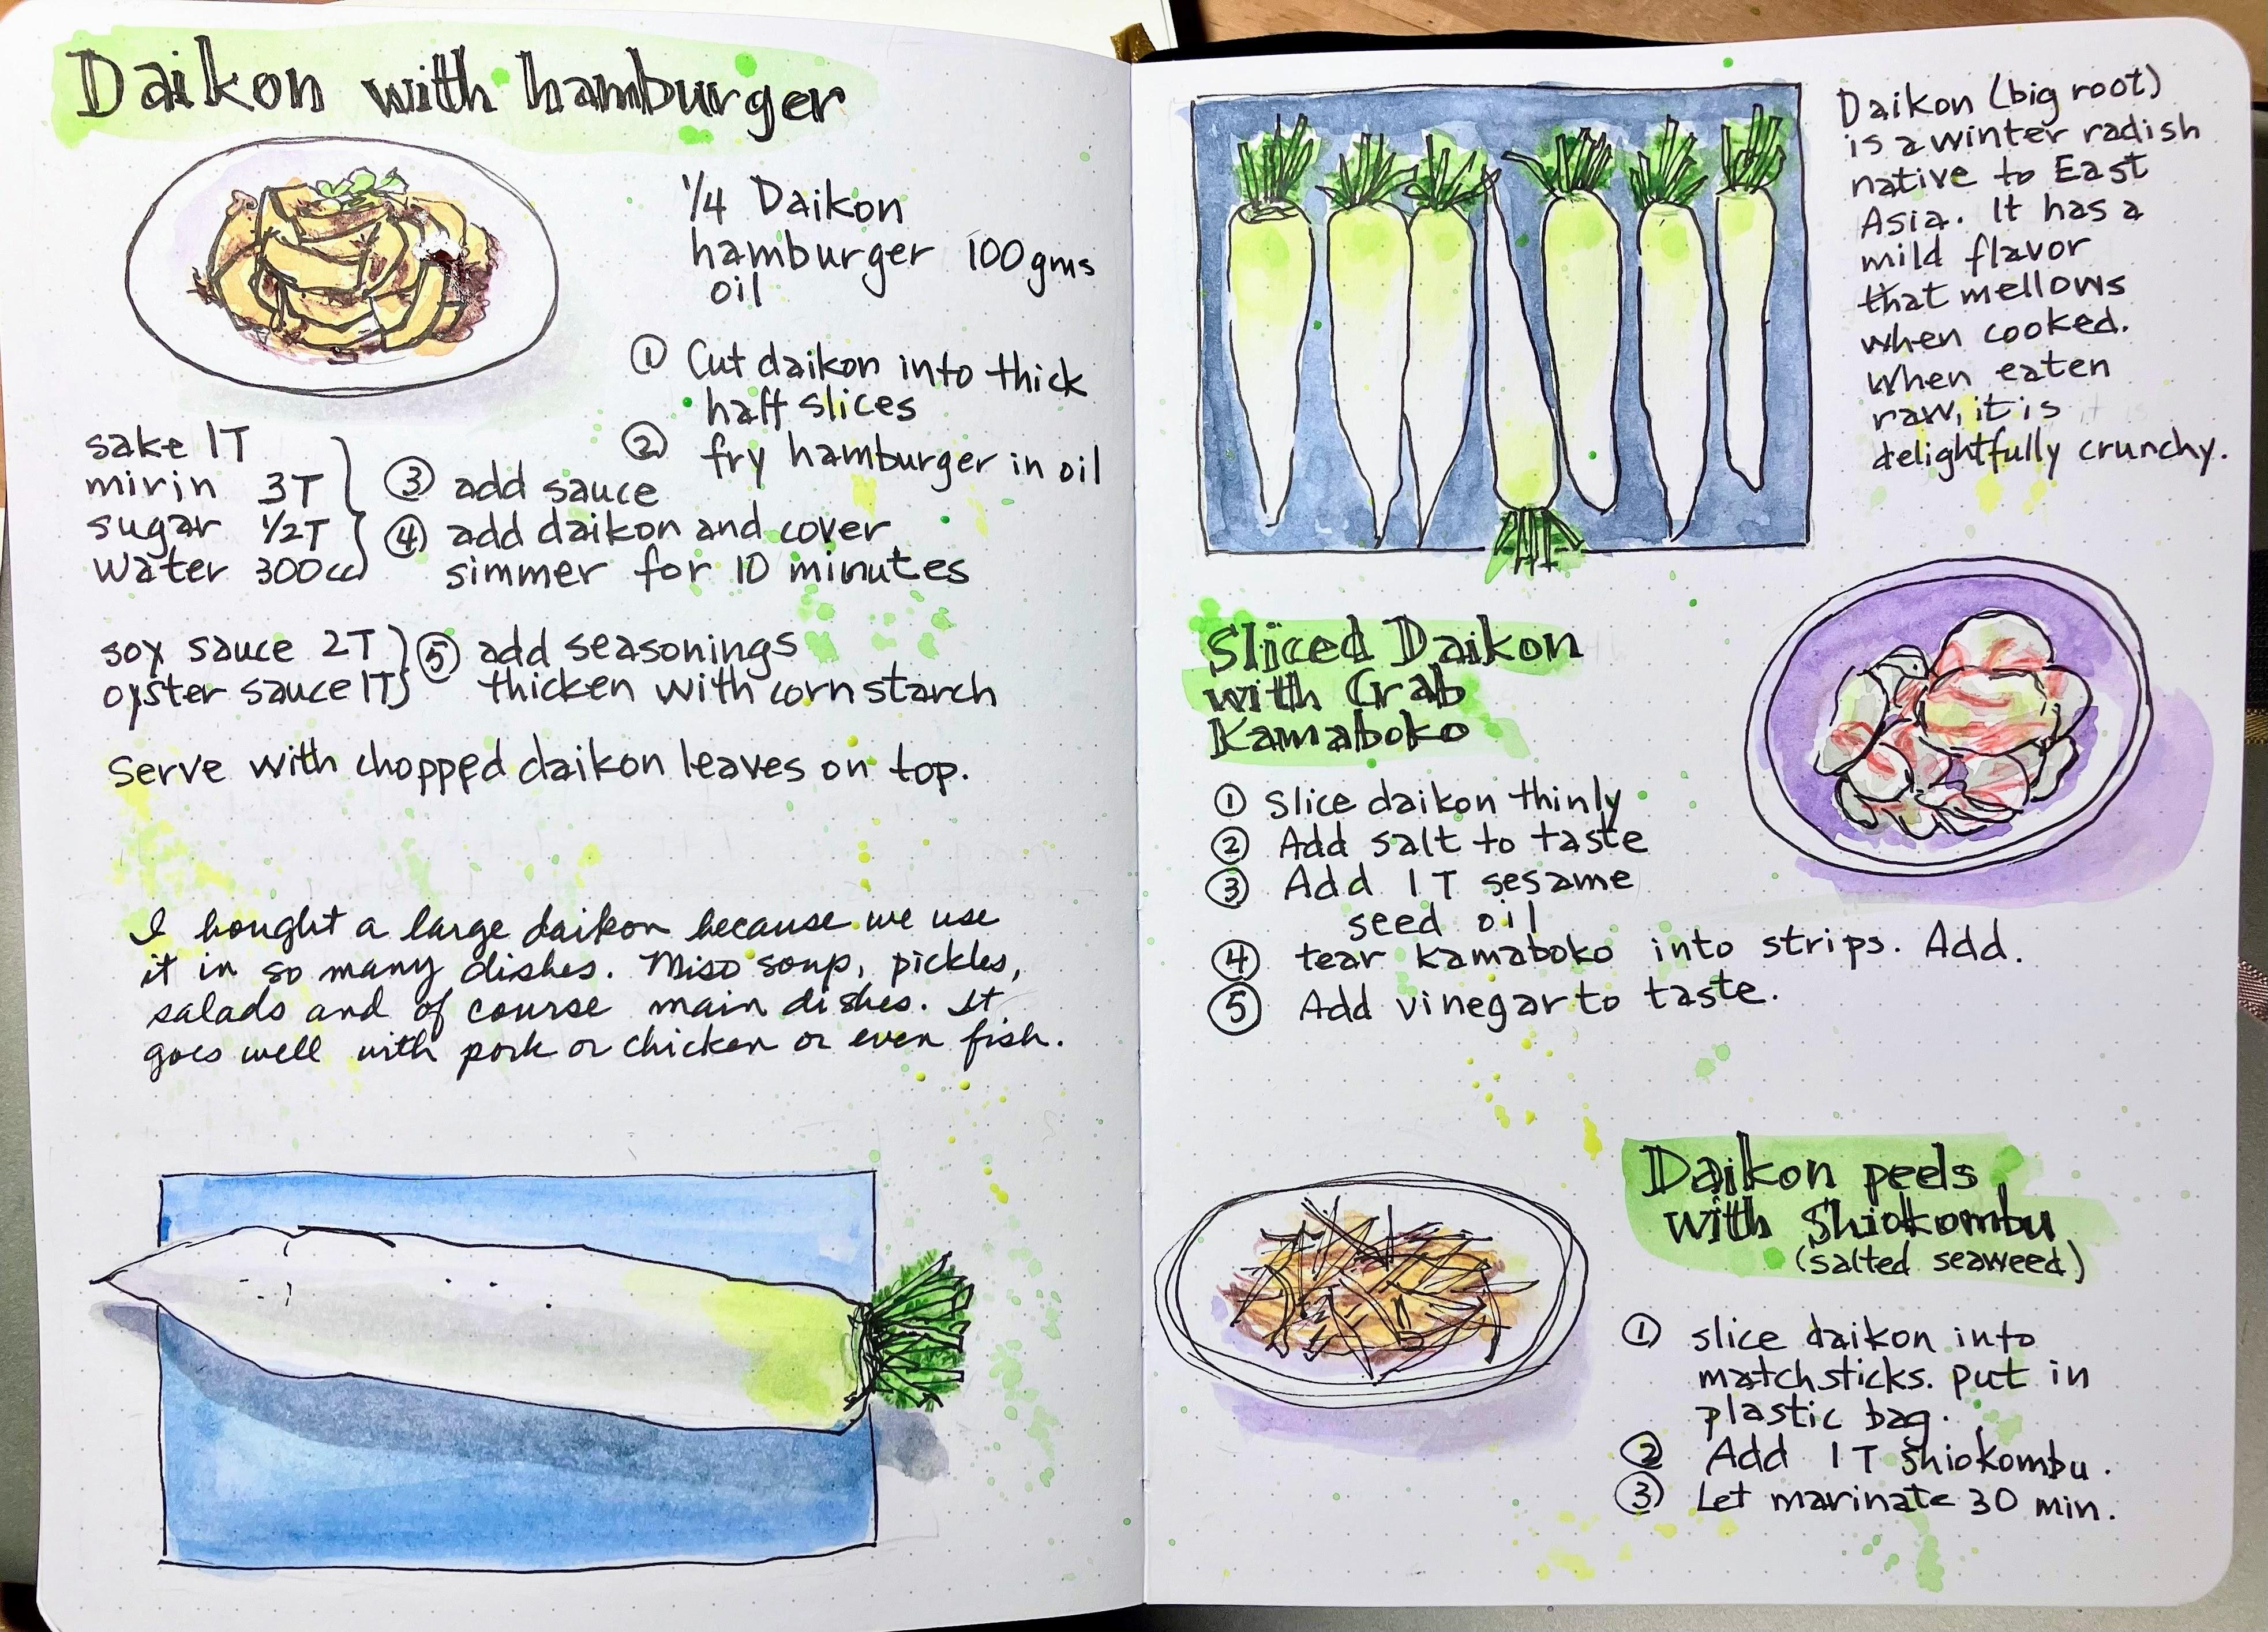 Daikon with hamburger
1/4 Daikon
hamburger 100gms
oil
① Cut daikon into thick
half slices
② fry hamburger in oil
sake 1T
mirin 3T
sugar 1/2T
water 300cc
③ add sauce
④ add daikon and cover
simmer for 10 minutes
soy sauce 2T
oyster sauce 1T
⑤ add seasonings
thicken with corn starch
Serve with chopped daikon leaves on top.
I bought a large daikon because we use
it in so many dishes. Miso soup, pickles,
salads and of course main dishes. It
goes well with pork or chicken or even fish.
Daikon (big root)
is a winter radish
native to East
Asia. It has a
mild flavor
that mellows
when cooked.
When eaten
raw, it is
delightfully crunchy.
Sliced Daikon
with Crab
Kamaboko
① Slice daikon thinly
② Add salt to taste
③ Add 1T sesame
seed oil
④ tear kamaboko into strips. Add.
⑤ Add vinegar to taste.
Daikon peels
with Shiokombu
(salted seaweed)
① slice daikon into
matchsticks. put in
plastic bag.
② Add 1T shiokombu.
③ Let marinate 30 min.